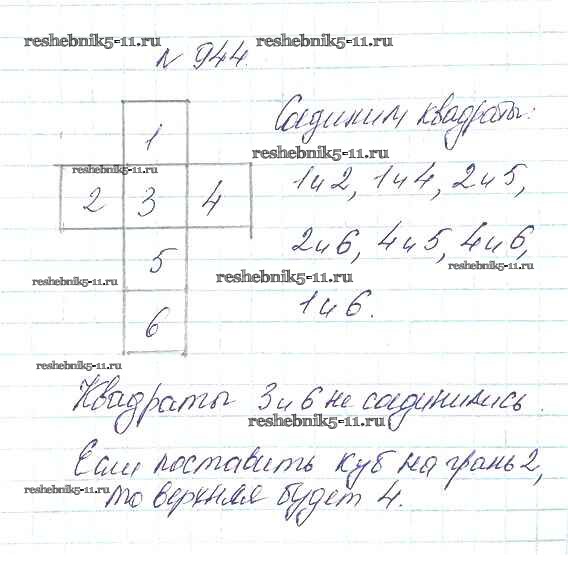 reshebnik5-11.ru reshebnik5-11.ru
№ 944.
1
Соединим квадраты:
reshebnik5-11.ru
reshebnik5-11.ru
2 3 4
1 и 2, 1 и 4, 2 и 5,
2 и 6, 4 и 5, 4 и 6,
5
reshebnik5-11.ru
reshebnik5-11.ru
reshebnik5-11.ru
6
1 и 6.
reshebnik5-11.ru
Квадраты 3 и 6 не соединились.
reshebnik5-11.ru
Если поставить куб на грань 2,
reshebnik5-11.ru
то верхняя будет 4.
reshebnik5-11.ru